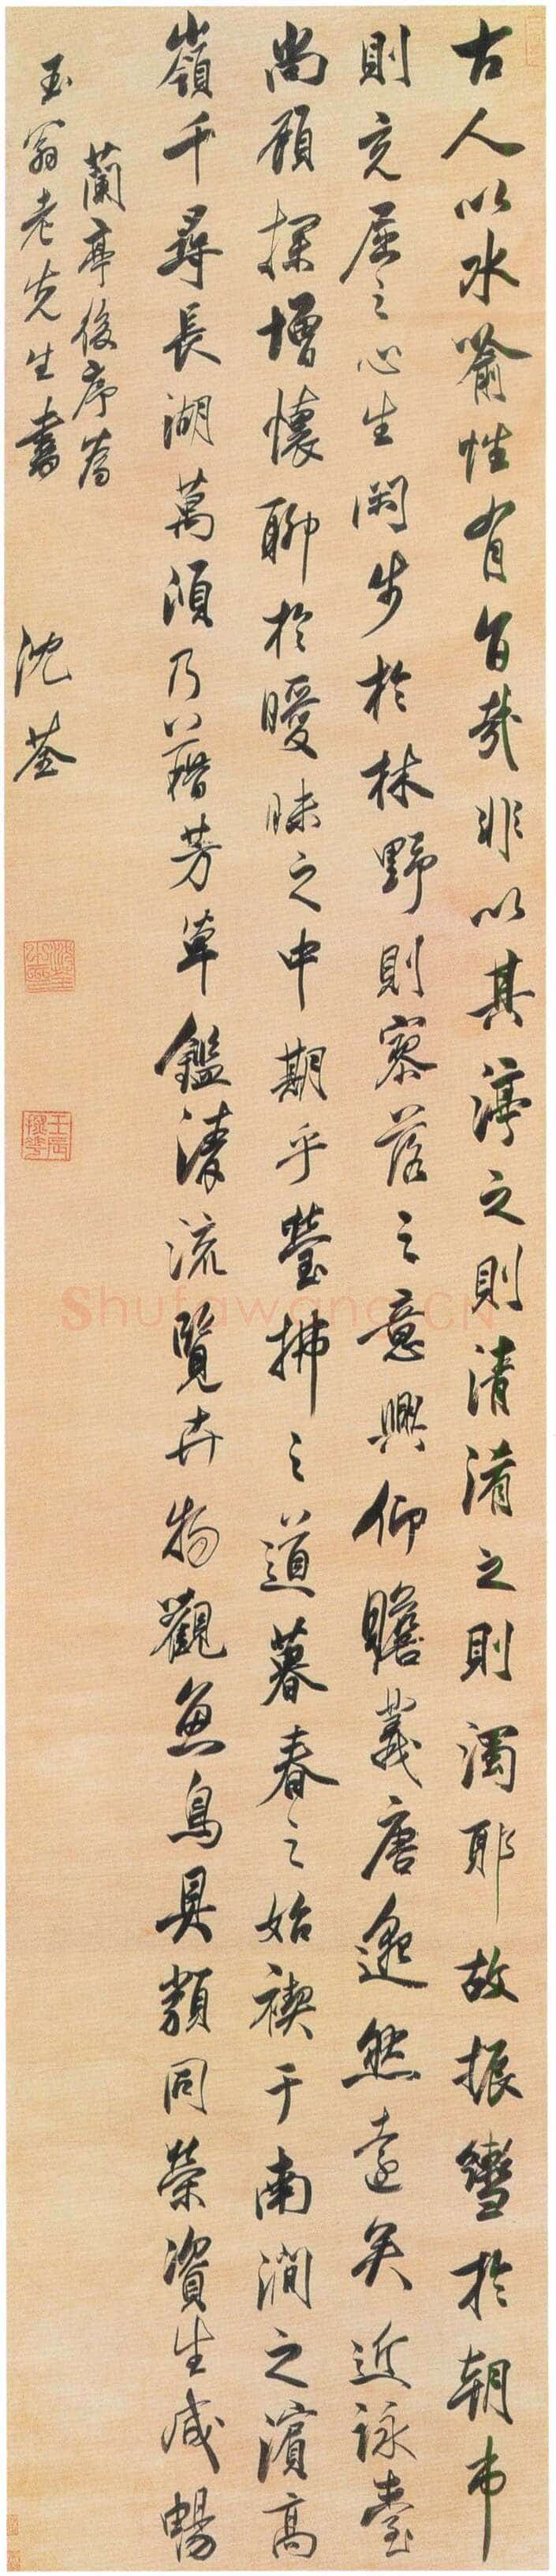 古人以水喻性有旨哉非以其渟之則清淆之則濁耶故振轡於朝市
則充屈之心生闲步於林野則寥落之意興仰瞻羲唐邈然遠矣近詠臺
尚顾探增懷聊於曖昧之中期乎瑩拂之道暮春之始禊于南澗之濱高
嶺千尋長湖萬頃乃藉芳草鑑清流覽卉物觀魚鳥具類同榮資生咸暢
蘭亭後序為
玉翁老先生書
沈荃
沈荃之印
Shufawang.CN